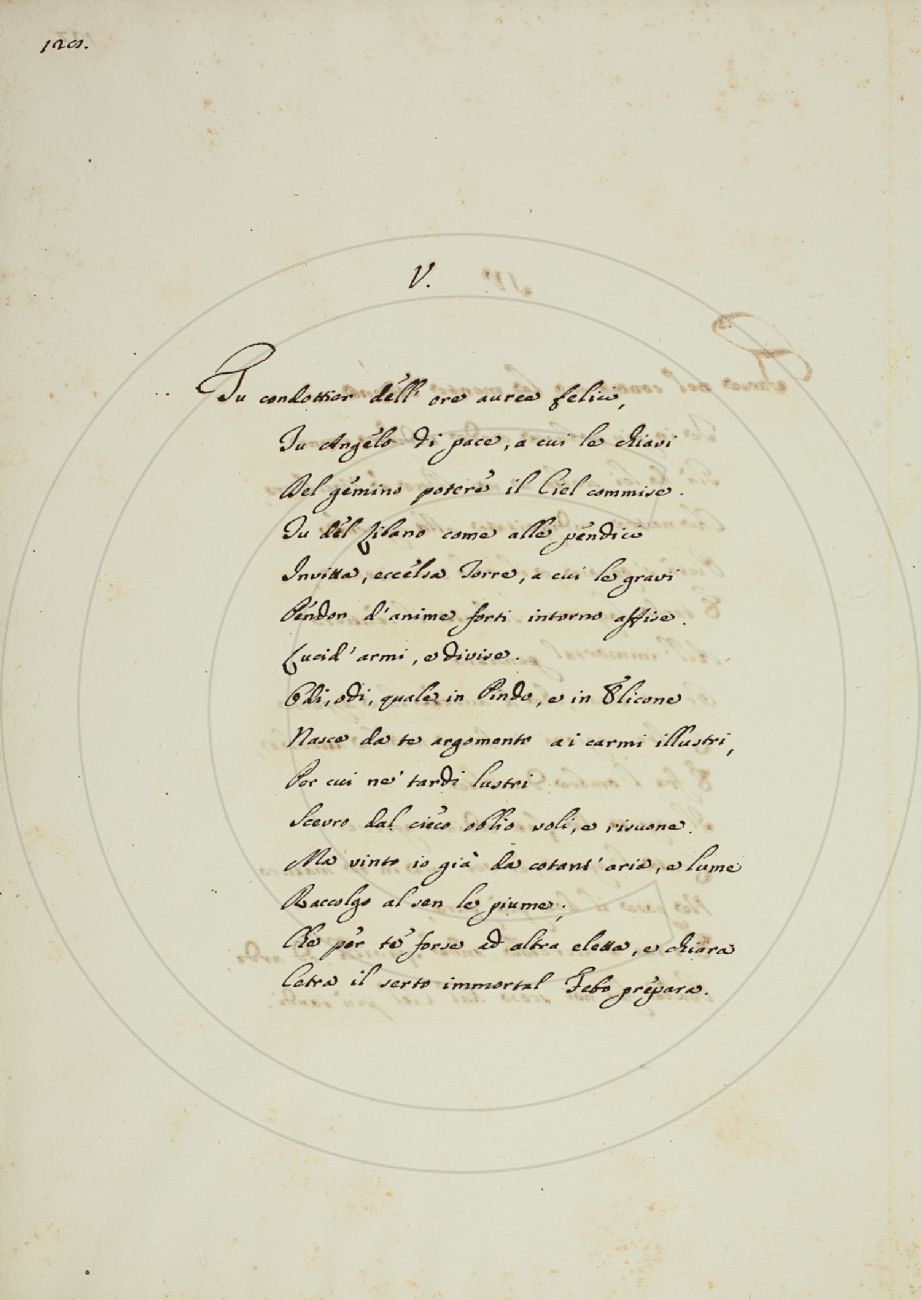 V.
Tu condottier dell' ore auree felici,
Tu Angelo di pace, a cui le chiavi
Del gemino potere il Ciel commise.
Tu del Libano come alle pendici
Invitta, eccelsa Torre, a cui le gravi
Pendon d'anime forti intorno affise.
Lucid' armi, e divise.
Odi, odi, quale in Pindo, e in Elicone
Nasce da te argomento ai carmi illustri,
Per cui ne' tardi lustri
Scevro dal cieco oblio voli, e risuone.
Ma vinto io già da cotant' aria, e lume
Raccolgo al sen le piume;
Che per te forse ad altra eletta, e chiara
Cetra il serto immortal Febo prepara.